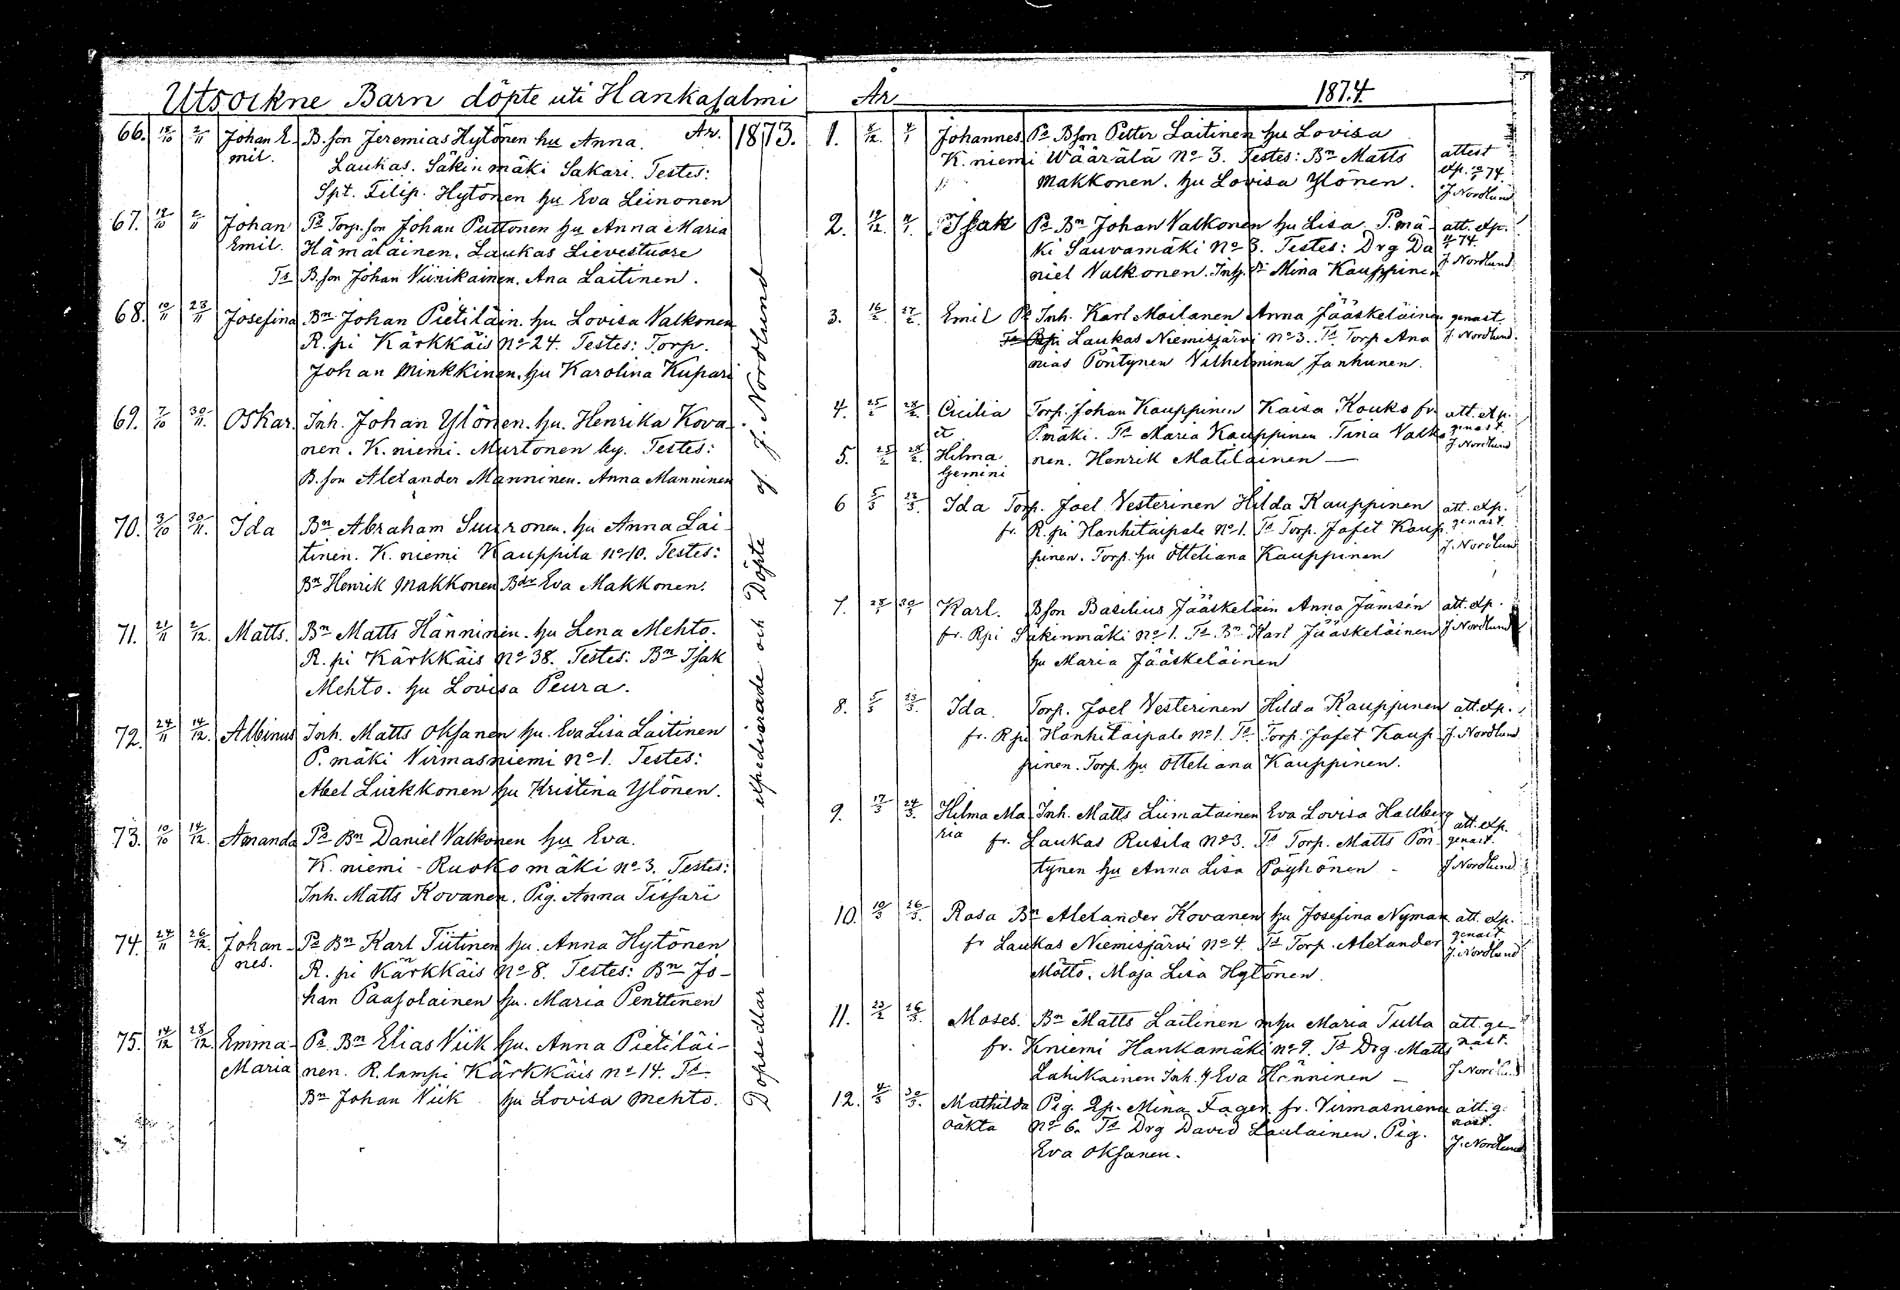 Utsockne Barn döpte uti Hankasalmi
År. 1873.
66. 18/10 2/11 Johan E- B.son Jeremias Hytönen hu Anna.
mil. Laukas. Säkinmäki Sakari. Testes:
Spt. Filip. Hytönen hu Eva Leinonen
67. 18/10 2/11 Johan Ps Torp.son Johan Puttonen hu Anna Maria
Emil. Hämäläinen. Laukas Lievestuore
Ts B.son Johan Viinikainen. Ana Laitinen.
68. 10/11 23/11 Josefina Bn Johan Pietiläin. hu Lovisa Valkonen
R.pi Kärkkäis No 24. Testes: Torp.
Johan Minkkinen. hu Karolina Kupari
69. 7/10 30/11. Oskar. Inh. Johan Ylönen. hu. Henrika Kova-
nen. K.niemi. Murtonen by. Testes:
B.son Alexander Manninen. Anna Manninen
70. 3/10 30/11. Ida Bn Abraham Suuronen. hu Anna Lai-
tinen. K.niemi Kauppila No 10. Testes:
Bn Henrik Makkonen Bdr Eva Makkonen.
71. 21/11 2/12. Matts. Bn Matts Hänninen. hu Lena Mehto.
R.pi Kärkkäis No 38. Testes: Bn Isak
Mehto. hu Lovisa Peura.
72. 24/11 14/12. Albinus Inh. Matts Oksanen hu. Eva Lisa Laitinen
P.mäki Virmasniemi No 1. Testes:
Abel Liukkonen hu Kristina Ylönen.
73. 10/10 14/12. Amanda Ps Bn Daniel Valkonen hu Eva.
K.niemi - Ruokomäki No 3. Testes:
Inh. Matts Kovanen. Pig. Anna Tissari
74. 24/11 26/12. Johan- Ps Bn Karl Tiitinen hu. Anna Hytönen
nes. R.pi Kärkkäis No 8. Testes: Bn Jo-
han Paasolainen hu. Maria Penttinen
75. 14/12 28/12. Emma- Ps Bn Elias Viik hu. Anna Pietiläi-
Maria nen. R.lampi Kärkkäis No 14. Ts
Bn Johan Viik hu Lovisa Mehto.
Dopsedlar expedierade och Döpte af J. Nordlund
År 1874.
1. 8/12 4/1 Johannes Ps Bson Petter Laitinen hu Lovisa
K.niemi Wäärälä No 3. Testes: Bn Matts attest
Makkonen. hu Lovisa Ylönen. exp. 74.
J Nordlund
2. 19/12. 4/1. Isak Ps Bn Johan Valkonen hu Lisa P.mä- att. exp.
ki Sauvamäki No 3. Testes: Drg Da 74.
niel Valkonen. Mina Kauppinen J. Nordlund
3. 16/2. 22/2. Emil Ps Inh. Karl Moilanen Anna Jääskeläinen genast
Laukas Niemisjärvi No 3. Ts Torp Ana J. Nordlund.
nias Pöntynen Vilhelmina Janhunen.
4. 25/2 28/2. Cecilia Torp. Johan Kauppinen Kaisa Kouko fr att. exp.
et P.mäki. Ts Maria Kauppinen Tina Valko genast.
5. 25/2 28/2. Hilma nen. Henrik Matilainen — J Nordlund
Gemini
6 5/3 23/3. Ida Torp. Joel Vesterinen Hilda Kauppinen att. exp.
fr. R.pi Hanhitaipale No 1. Ts Torp. Jafet Kaup- genast.
pinen. Torp. hu Otteliana Kauppinen J. Nordlund
7. 30/1 Karl. Bson Basilius Jääskeläin Anna Jämsén att. exp.
fr. Rpi Säkinmäki No 1. Ts Bn Karl Jääskeläinen J Nordlund
hu Maria Jääskeläinen
8. 5/3 23/3. Ida. Torp. Joel Vesterinen Hilda Kauppinen att. exp.
fr. Rpi Hanhitaipale No 1. Ts Torp. Jafet Kaup- J. Nordlund
pinen. Torp. hu Otteliana Kauppinen.
9. 17/3 24/3. Hilma Ma- Inh. Matts Liimatainen Eva Lovisa Hallberg att. exp.
ria fr. Laukas Rusila No 3. Ts Torp. Matts Pön- genast.
tynen hu Anna Lisa Pöyhönen - J Nordlund
10. 10/3 26/3. Rosa Bn Alexander Kovanen hu Josefina Nyman att. exp.
fr Laukas Niemisjärvi No 4. Ts Torp. Alexander genast
Möttö. Maja Lisa Hytönen. J. Nordlund
11. 23/2 26/3. Moses. Bn Matts Laitinen hu Maria Tulla att. ge-
fr. Kniemi Hankamäki No 9. Ts Drg Matts nast.
Lahikainen Inh. Eva Hänninen - J. Nordlund
12. 4/3 30/3. Mathilda Pig. Mina Fager. fr. Virmasniemi att. g.
oäkta No 6. Ts Drg David Laulainen. Pig. nast.
Eva Oksanen. J. Nordlund